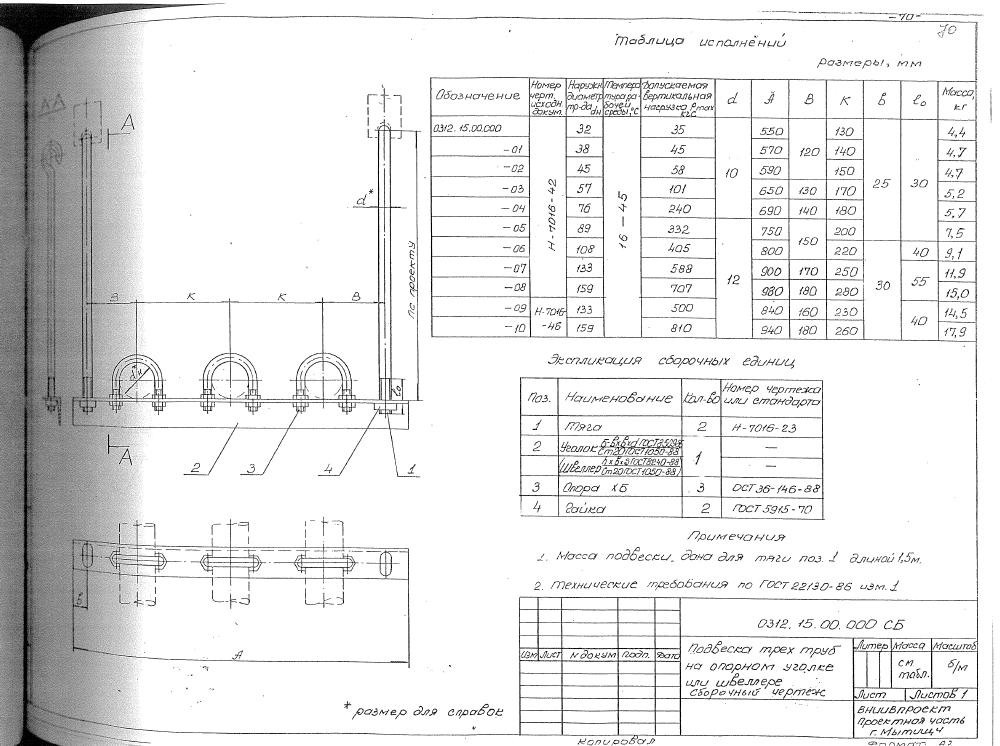 -70-
70
Таблица исполнений
размеры, мм
Обозначение | Номер черт. исходн. докум. | Наружн. диаметр тр-да dн | Температура рабочей среды, °С | Допускаемая вертикальная нагрузка Pmax кгс | d | A | B | K | b | l₀ | Масса, кг
0312.15.00.000 | Н-7016-42 | 32 | 16-45 | 35 | 10 | 550 | 120 | 130 | 25 | 30 | 4,4
-01 | 38 | 45 | 570 | 140 | 4,7
-02 | 45 | 58 | 590 | 150 | 4,7
-03 | 57 | 101 | 650 | 130 | 170 | 5,2
-04 | 76 | 240 | 690 | 140 | 180 | 5,7
-05 | 89 | 332 | 12 | 750 | 150 | 200 | 7,5
-06 | 108 | 405 | 800 | 220 | 30 | 40 | 9,1
-07 | 133 | 588 | 900 | 170 | 250 | 55 | 11,9
-08 | 159 | 707 | 980 | 180 | 280 | 15,0
-09 | Н-7016-46 | 133 | 500 | 840 | 160 | 230 | 40 | 14,5
-10 | 159 | 810 | 940 | 180 | 260 | 17,9
АА
А
d*
по проекту
В
К
К
В
dн
l₀
А
2
3
4
1
b
А
* размер для справок
Экспликация сборочных единиц
Поз. | Наименование | Кол-во | Номер чертежа или стандарта
1 | Тяга | 2 | Н-7016-23
2 | Уголок | 1 | —
Ст20ГОСТ1050-88
(Швеллер hхbхSГОСТ8240-89 | —
Ст20ГОСТ1050-88)
3 | Опора ХБ | 3 | ОСТ 36-146-88
4 | Гайка | 2 | ГОСТ 5915-70
Примечания
1. Масса подвески дана для тяги поз. 1 длиной 1,5м.
2. Технические требования по ГОСТ 22130-86 изм. 1
0312.15.00.000 СБ
Изм Лист N докум Подп. Дата
Подвеска трех труб
на опорном уголке
или швеллере
сборочный чертеж
Литер Масса Масштаб
см табл. б/м
Лист Листов 1
ВНИИВПРОЕКТ
проектная часть
г. Мытищи
Копировал
Формат А3